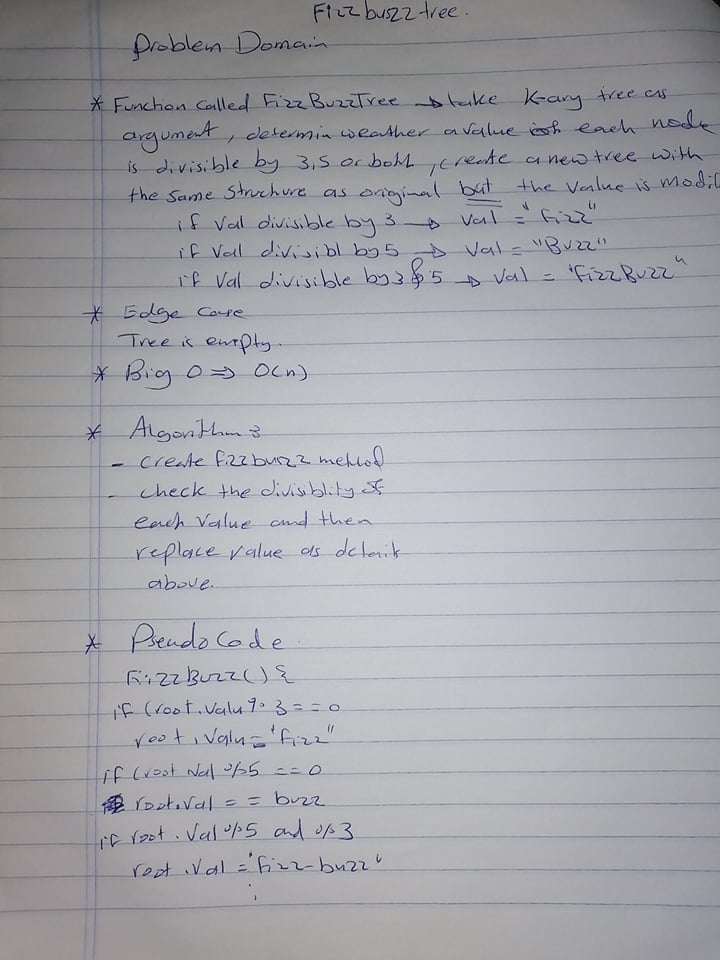 Fizzbuzztree.
Problem Domain
* Function called FizzBuzzTree → take K-ary tree as
argument, determin weather a value of each node
is divisible by 3,5 or both, create a new tree with
the same structure as original but the value is modif
if val divisible by 3 → val = "Fizz"
if val divisibl by 5 → val = "Buzz"
if val divisible by 3 & 5 → val = "FizzBuzz"
* Edge case
Tree is empty.
* Big O ⇒ O(n)
* Algorithm :
- create fizzbuzz method
- check the divisiblity of
each value and then
replace value as details
above.
* Pseudo Code
FizzBuzz() {
if (root.valu % 3 == 0
root.valu = "fizz"
if (root val % 5 == 0
root.val == buzz
if root.val % 5 and % 3
root.val = "fizz-buzz"